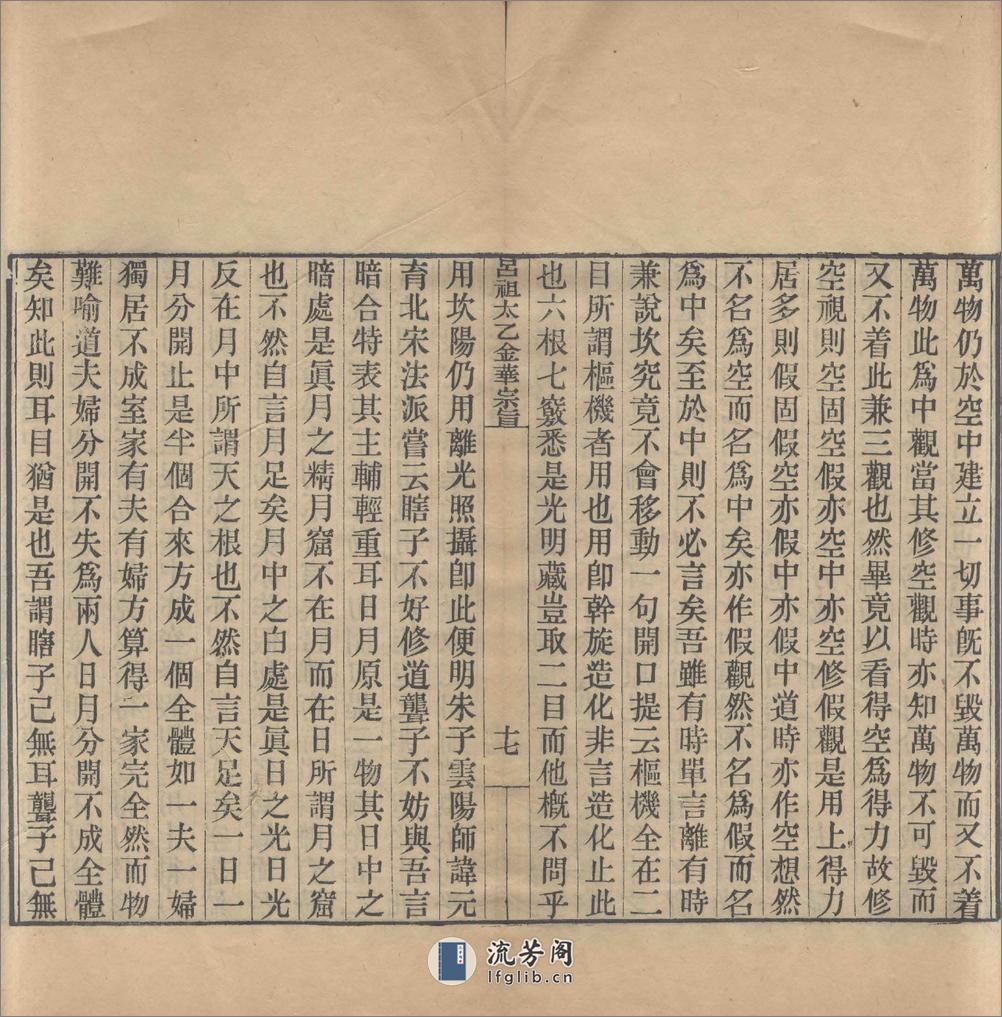 萬物仍於空中建立一切事旣不毀萬物而又不着
萬物此爲中觀當其修空觀時亦知萬物不可毀而
又不着此兼三觀也然畢竟以看得空爲得力故修
空觀則空固空假亦空中亦空修假觀是用上得力
居多則假固假空亦假中亦假中道時亦作空想然
不名爲空而名爲中矣亦作假觀然不名爲假而名
爲中矣至於中則不必言矣吾雖有時單言離有時
兼說坎究竟不會移動一句開口提云樞機全在二
目所謂樞機者用也用卽斡旋造化非言造化止此
也六根七竅悉是光明藏豈取二目而他概不問乎
呂祖太乙金華宗旨
十七
用坎陽仍用離光照攝卽此便明朱子雲陽師諱元
育北宋法派嘗云瞎子不好修道聾子不妨與吾言
暗合特表其主輔輕重耳日月原是一物其日中之
暗處是眞月之精月窟不在月而在日所謂月之窟
也不然自言月足矣月中之白處是眞日之光日光
反在月中所謂天之根也不然自言天足矣一日一
月分開止是半個合來方成一個全體如一夫一婦
獨居不成室家有夫有婦方算得一家完全然而物
難喻道夫婦分開不失爲兩人日月分開不成全體
矣知此則耳目猶是也吾謂瞎子已無耳聾子已無
流芳阁
lfglib.cn